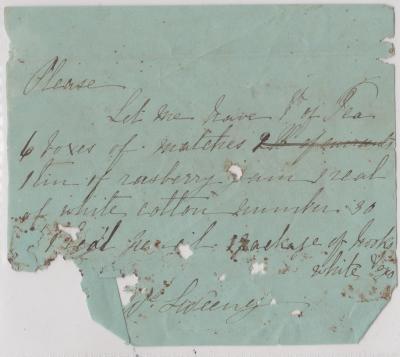 Please
Let me have 1 lb of Tea
6 boxes of matches
1 tin of rasberry Jam 1 real
of white cotton number 30
1 package of
white